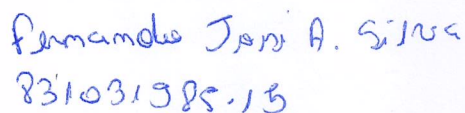 Fernando José A. Silva
831031985-15